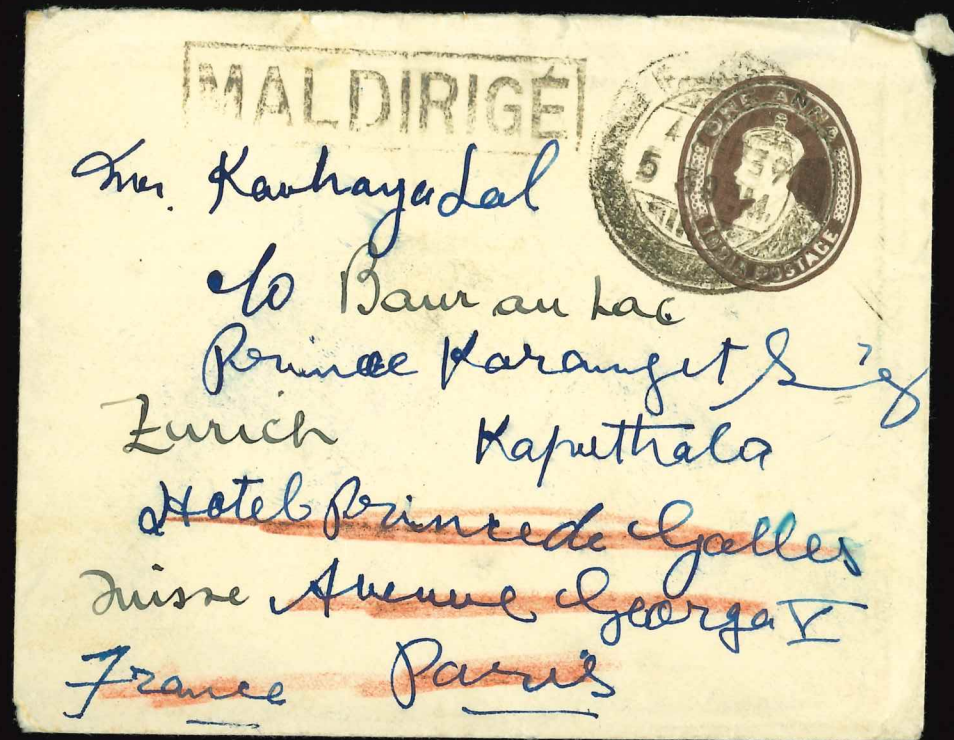 MALDIRIGÉ
ONE ANNA
INDIA POSTAGE
4
5 39
Kanhaya Lal
c/o Baur au Lac
Prince Karamjit
Zurich Kapurthala
Hotel Prince de Galles
Suisse Avenue George V
France Paris